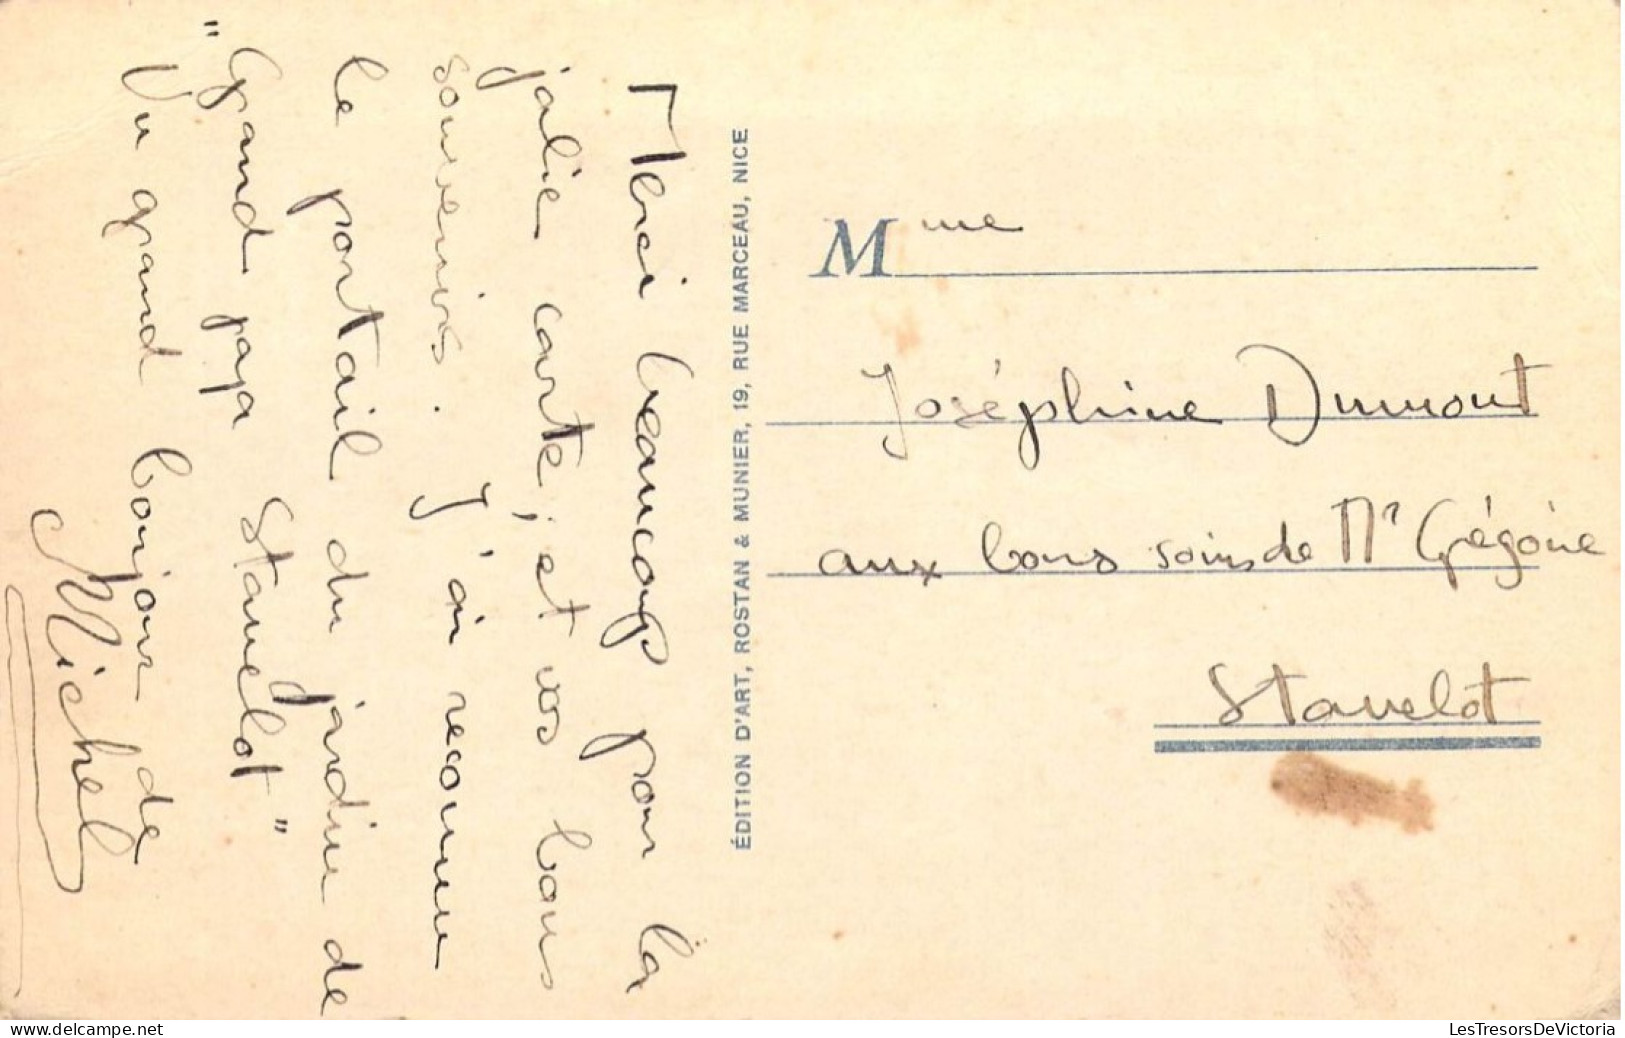 Merci beaucoup pour la
jolie carte, et vos bons
souvenirs. J'ai reconnu
le portail du jardin de
"Grand papa Stavelot"
Un grand bonjour de
Michel
ÉDITION D'ART, ROSTAN & MUNIER, 19, RUE MARCEAU, NICE
Mme
Joséphine Dumont
aux bons soins de Mr Grégoire
Stavelot
delcampe.net
LesTresorsDeVictoria